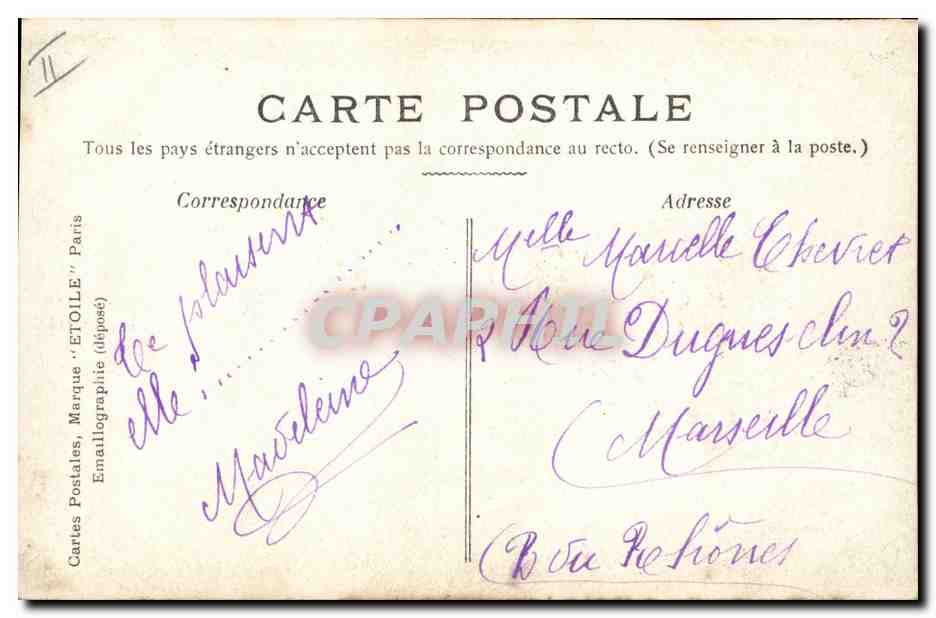 11
CARTE POSTALE
Tous les pays étrangers n'acceptent pas la correspondance au recto. (Se renseigner à la poste.)
Correspondance
Adresse
Cartes Postales, Marque "ETOILE" Paris
Emaillographie (déposé)
plaisent
elle
Madeleine
Melle Marcelle Chevret
2 Rue
Marseille
B du Rhônes
CPAPHIL